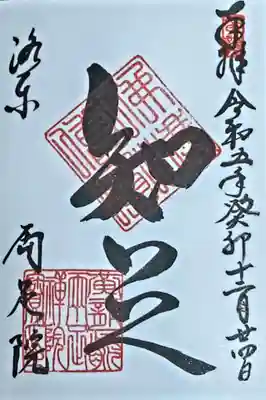 奉拝 令和五年癸卯十二月廿四日
知足
洛東
両足院